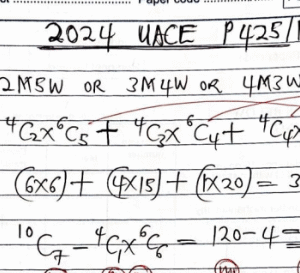 Paper code
2024 UACE P425/1
2M5W OR 3M4W OR 4M3W
⁴C₂x⁶C₅ + ⁴C₃x⁶C₄ + ⁴C₄x
(6x6) + (4x15) + (1x20) = 3
¹⁰C₇ - ⁴C₁x⁶C₆ = 120-4 =